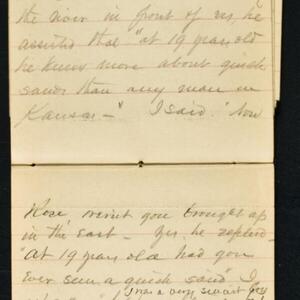 the river in front of us, he
asserted that "at 19 years old
he knew more about quick
sands than any man in
Kansas—" I said. "Now
Rose, weren't you brought up
in the east— Yes he replied—
"At 19 years old had you
ever seen a quick sand" I
was a very smart boy